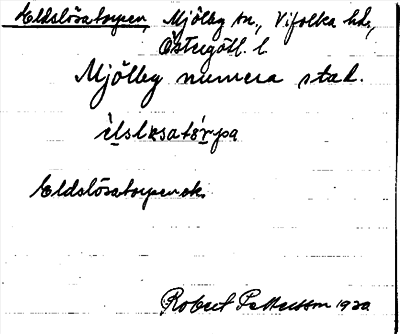 Eldslösatorpen, Mjölby sn., Vifolka hd.,
Östergötl. l
Mjölby numera stad.
Eldslösatorpen ek.
Robert Pettersson 1920